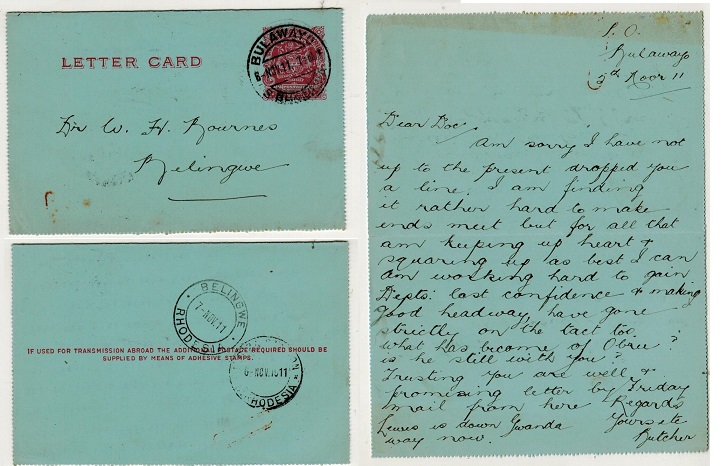 LETTER CARD
BULAWAYO
6-NOV.11
S. RHODESIA
Dr W. H. Kournes
Belingwe
BELINGWE
7-NOV.11
RHODESIA
IF USED FOR TRANSMISSION ABROAD THE ADDITIONAL POSTAGE REQUIRED SHOULD BE
SUPPLIED BY MEANS OF ADHESIVE STAMPS.
6-NOV.1911
RHODESIA
P. O.
Bulawayo
5th Novr 11
Dear Doc
Am sorry I have not
up to the present dropped you
a line. I am finding
it rather hard to make
ends meet but for all that
am keeping up heart &
squaring up as best I can
Am working hard to gain
Depts: lost confidence & making
good headway, have gone
strictly on the tact too
what has become of ?
is he still with you?
Trusting you are well &
promising letter by Friday
mail from here Regards
Lewis is down Gwanda Yours etc
way now. Butcher